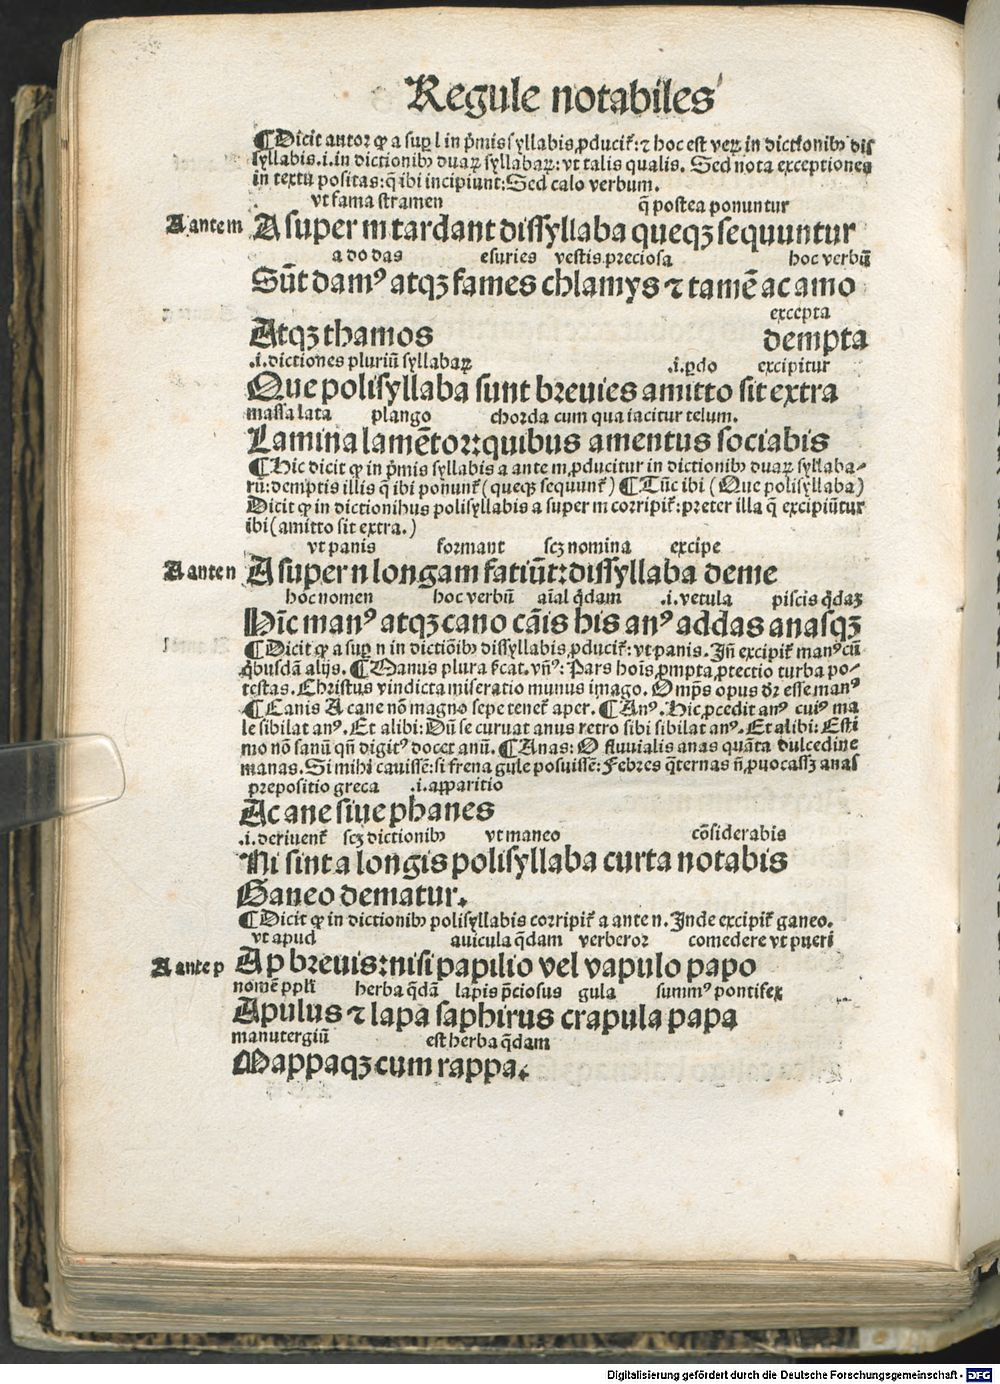 Regule notabiles
¶Dicit autor ꝙ a sup̲ l in p̄mis syllabis ꝓducit᷑: ⁊ hoc est veꝝ in dictionibꝰ dis
syllabis.i.in dictionibꝰ duaꝝ syllabaꝝ: vt talis qualis. Sed nota exceptiones
in textu positas: q̄ ibi incipiunt: Sed calo verbum.
vt fama stramen q̄ postea ponuntur
A ante m A super m tardant dissyllaba queqꝫ sequuntur
a do das esuries vestis preciosa hoc verbū
Sūt damꝰ atqꝫ fames chlamys ⁊ tamē ac amo
excepta
Atqꝫ thamos dempta
.i.dictiones pluriū syllabaꝝ .i.ꝑdo excipitur
Que polisyllaba sunt breuies amitto sit extra
massa lata plango chorda cum qua iacitur telum.
Lamina lamētor: quibus amentus sociabis
¶Hic dicit ꝙ in p̄mis syllabis a ante m ꝓducitur in dictionibꝰ duaꝝ syllaba-
rū: demptis illis q̄ ibi ponunt᷑ (queqꝫ sequunt᷑) ¶Tūc ibi (Que polisyllaba)
Dicit ꝙ in dictionibus polisyllabis a super m corripit᷑: preter illa q̄ excipiūtur
ibi (amitto sit extra.)
vt panis formant scꝫ nomina excipe
A ante n A super n longam faciūt: dissyllaba deme
hoc nomen hoc verbū aīal q̄dam .i.vetula piscis q̄daꝫ
Hīc manꝰ atqꝫ cano cāis his anꝰ addas anasqꝫ
¶Dicit ꝙ a sup̲ n in dictiōibꝰ dissyllabis ꝓducit᷑: vt panis. Jn̄ excipit᷑ manꝰ cū
q̄busdā alijs. ¶Manus plura s᷑cat. vn̄ꝰ: Pars hoīs ꝓmpta ꝓtectio turba po-
testas. Christus vindicta miseratio munus imago. Omp̄s opus dr̄ esse manꝰ
¶Canis A cane nō magno sepe tenet᷑ aper. ¶Anꝰ. Hic ꝓcedit anꝰ cuiꝰ ma
le sibilat anꝰ. Et alibi: Dū se curuat anus retro sibi sibilat anꝰ. Et alibi: Esti
mo nō sanū qn̄ digitꝰ docet anū. ¶Anas: O fluuialis anas quāta dulcedine
manas. Si mihi cauissē: si frena gule posuissē: Febres q̄ternas n̄ ꝓuocassꝫ anas
prepositio greca .i.apparitio
Ac ane siue phanes
.i.deriuent᷑ scꝫ dictionibꝰ vt maneo cōsiderabis
Ni sint a longis polisyllaba curta notabis
Ganeo dematur.
¶Dicit ꝙ in dictionibꝰ polisyllabis corripit᷑ a ante n. Jnde excipit᷑ ganeo.
vt apud auicula q̄dam verberor comedere vt pueri
A ante p Ap breuis: nisi papilio vel vapulo papo
nomē ppl̄i herba q̄dā lapis p̄ciosus gula summꝰ pontifex
Apulus ⁊ lapa saphirus crapula papa
manutergiū est herba q̄dam
Mappaqꝫ cum rappa.
Digitalisierung gefördert durch die Deutsche Forschungsgemeinschaft - DFG